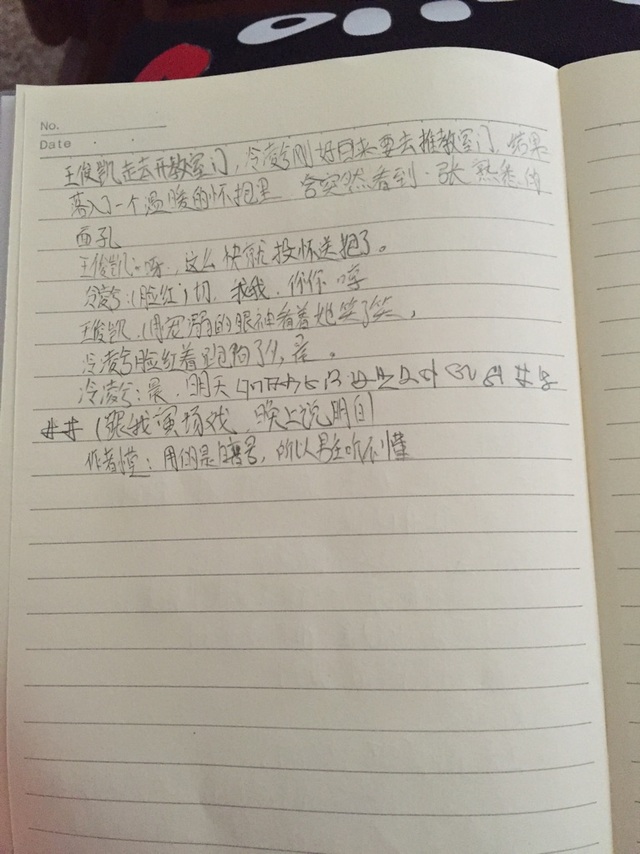 No.
Date
王俊凯走去开教室门,冷凌兮刚好回来要去推教室门,结果
落入了一个温暖的怀抱里 突然看到一张熟悉的
面孔
王俊凯:呀,这么快就投怀送抱了。
冷凌兮:(脸红)切,我我,你你 哼
王俊凯(用宠溺的眼神看着她笑了笑,
冷凌兮脸红着跑向了
冷凌兮:晨,明天
##(跟我演场戏,晚上说明白)
作者懂:用的是暗号,所以男主听不懂